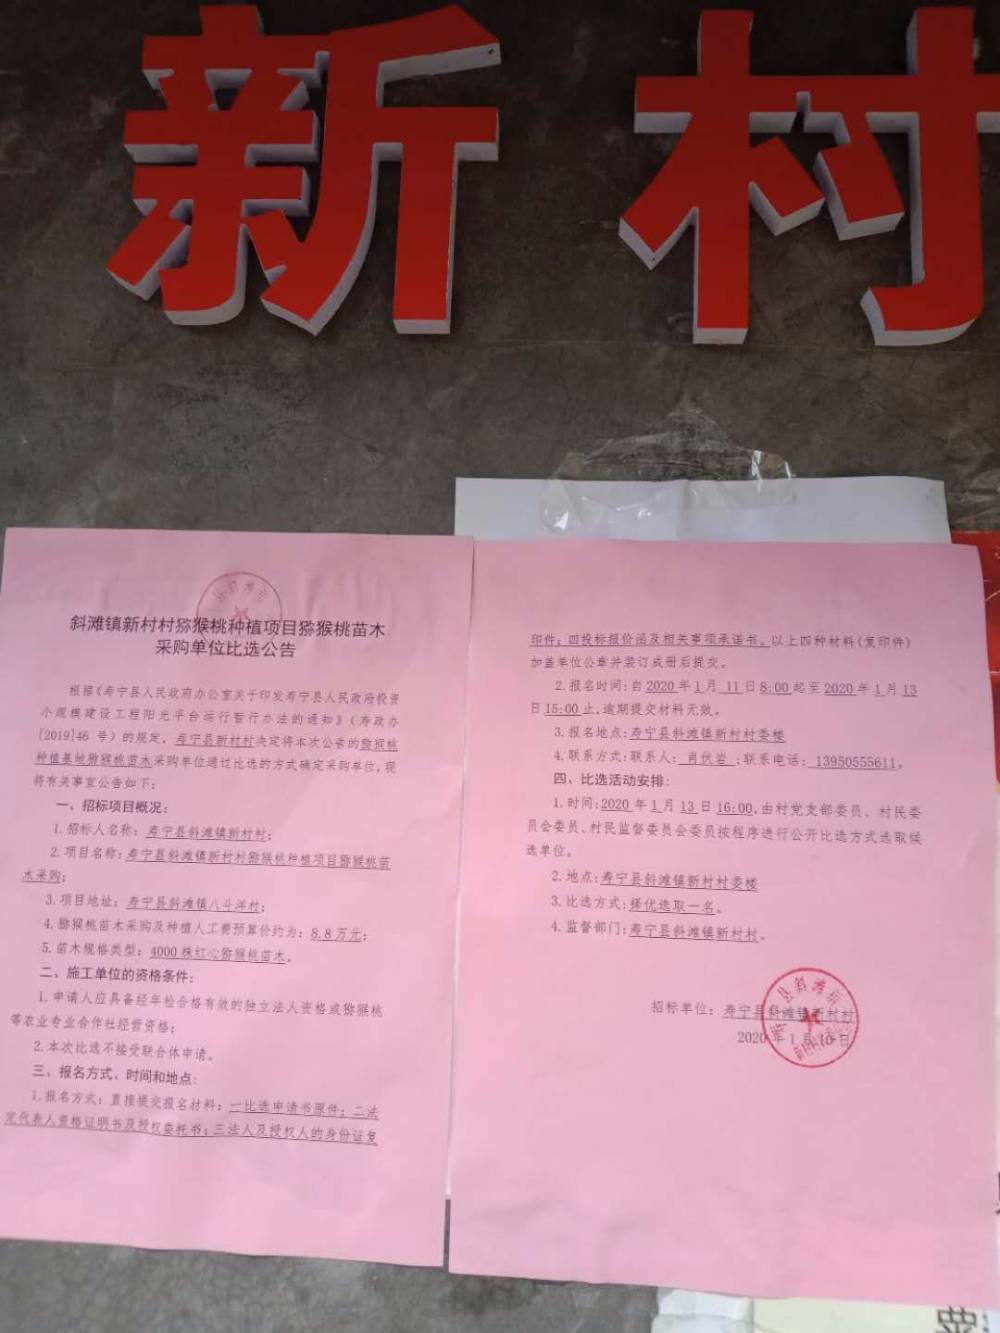 新村
斜滩镇新村村猕猴桃种植项目猕猴桃苗木
采购单位比选公告
根据《寿宁县人民政府办公室关于印发寿宁县人民政府投资
小规模建设工程阳光平台运行暂行办法的通知》(寿政办
[2019]46 号)的规定，寿宁县新村村决定将本次公告的猕猴桃
种植基地猕猴桃苗木采购单位通过比选的方式确定采购单位,现
将有关事宜公告如下:
一、招标项目概况:
1.招标人名称: 寿宁县斜滩镇新村村;
2.项目名称:寿宁县斜滩镇新村村猕猴桃种植项目猕猴桃苗
木采购;
3.项目地址: 寿宁县斜滩镇八斗洋村;
4.猕猴桃苗木采购及种植人工费预算价约为: 8.8万元;
5.苗木规格类型: 4000株红心猕猴桃苗木。
二、施工单位的资格条件:
1.申请人应具备经年检合格有效的独立法人资格或猕猴桃
等农业专业合作社经营资格;
2.本次比选不接受联合体申请。
三、报名方式、时间和地点:
1.报名方式: 直接提交报名材料: 一比选申请书原件; 二法
定代表人资格证明书及授权委托书; 三法人及授权人的身份证复
印件; 四投标报价函及相关事项承诺书。以上四种材料(复印件)
加盖单位公章并装订成册后提交。
2.报名时间:自2020 年1月 11 日8:00起至 2020 年 1月 13
日15:00止,逾期提交材料无效。
3.报名地点: 寿宁县斜滩镇新村村委楼
4.联系方式:联系人: 肖伏岩 ;联系电话: 13950555611。
四、比选活动安排:
1.时间:2020 年1月 13 日 16:00,由村党支部委员、村民委
员会委员、村民监督委员会委员按程序进行公开比选方式选取候
选单位。
2.地点:寿宁县斜滩镇新村村委楼
3.比选方式:择优选取一名。
4.监督部门:寿宁县斜滩镇新村村。
招标单位: 寿宁县斜滩镇新村村
2020 年1 月10 日